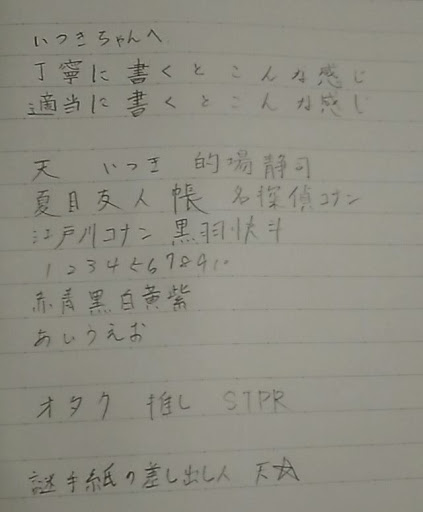 いつきちゃんへ
丁寧に書くとこんな感じ
適当に書くとこんな感じ
天 いつき 的場静司
夏目友人帳 名探偵コナン
江戸川コナン 黒羽快斗
1 2 3 4 5 6 7 8 9 10
赤青黒白黄紫
あいうえお
オタク 推し STPR
謎手紙の差し出し人 天☆